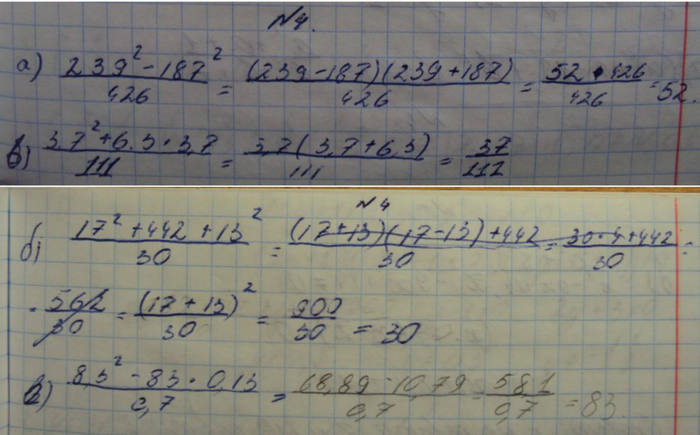 №4.
а) (239² - 187²)/426 = ((239-187)(239+187))/426 = (52 · 426)/426 = 52
в) (3,7² + 6,3 · 3,7)/111 = (3,7(3,7+6,3))/111 = 37/111
№4
б) (17² + 442 + 13²)/30 = ((17+13)(17-13)+442)/30 = (30·4+442)/30 =
= 562/30 = (17+13)²/30 = 900/30 = 30
в) (8,3² - 83 · 0,13)/0,7 = (68,89 - 10,79)/0,7 = 58,1/0,7 = 83